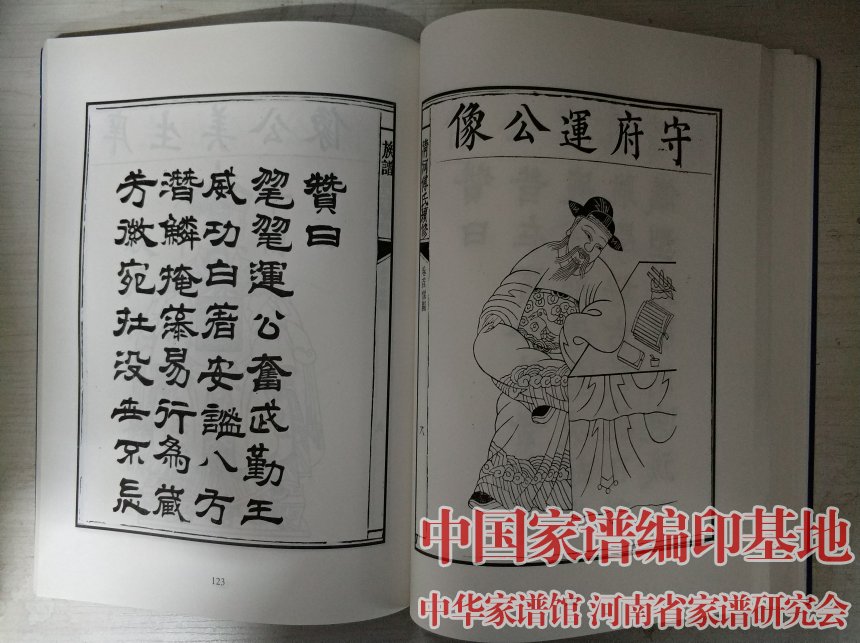 守府運公像
族譜
贊曰
運公奮武勤王
威功白著安謐八方
潛鱗掩藻易行為藏
芳徽宛在沒世不忘
123
中国家谱编印基地
中华家谱馆 河南省家谱研究会